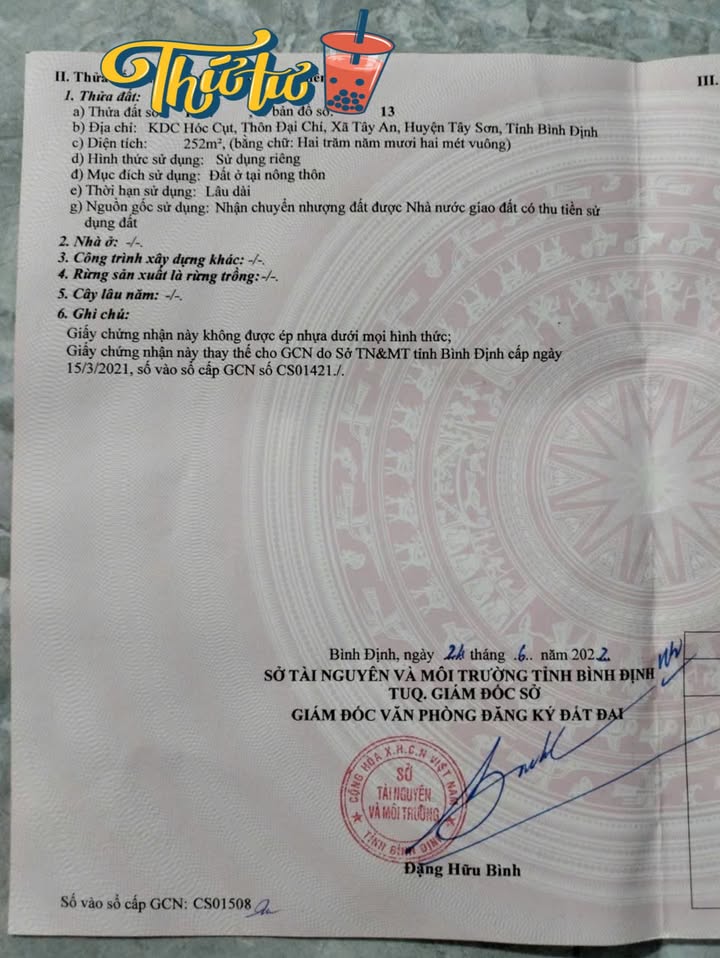 Thứ tư
II. Thửa
III.
1. Thửa đất:
a) Thửa đất số: bản đồ số: 13
b) Địa chỉ: KDC Hóc Cụt, Thôn Đại Chí, Xã Tây An, Huyện Tây Sơn, Tỉnh Bình Định
c) Diện tích: 252m², (bằng chữ: Hai trăm năm mươi hai mét vuông)
d) Hình thức sử dụng: Sử dụng riêng
đ) Mục đích sử dụng: Đất ở tại nông thôn
e) Thời hạn sử dụng: Lâu dài
g) Nguồn gốc sử dụng: Nhận chuyển nhượng đất được Nhà nước giao đất có thu tiền sử
dụng đất
2. Nhà ở: -/-.
3. Công trình xây dựng khác: -/-.
4. Rừng sản xuất là rừng trồng:-/-.
5. Cây lâu năm: -/-.
6. Ghi chú:
Giấy chứng nhận này không được ép nhựa dưới mọi hình thức;
Giấy chứng nhận này thay thế cho GCN do Sở TN&MT tỉnh Bình Định cấp ngày
15/3/2021, số vào sổ cấp GCN số CS01421./.
Bình Định, ngày tháng .6.. năm 2022.
SỞ TÀI NGUYÊN VÀ MÔI TRƯỜNG TỈNH BÌNH ĐỊNH
TUQ. GIÁM ĐỐC SỞ
GIÁM ĐỐC VĂN PHÒNG ĐĂNG KÝ ĐẤT ĐAI
CỘNG HÒA X.H.C.N VIỆT NAM
SỞ
TÀI NGUYÊN
VÀ MÔI TRƯỜNG
TỈNH BÌNH ĐỊNH
Đặng Hữu Bình
Số vào sổ cấp GCN: CS01508